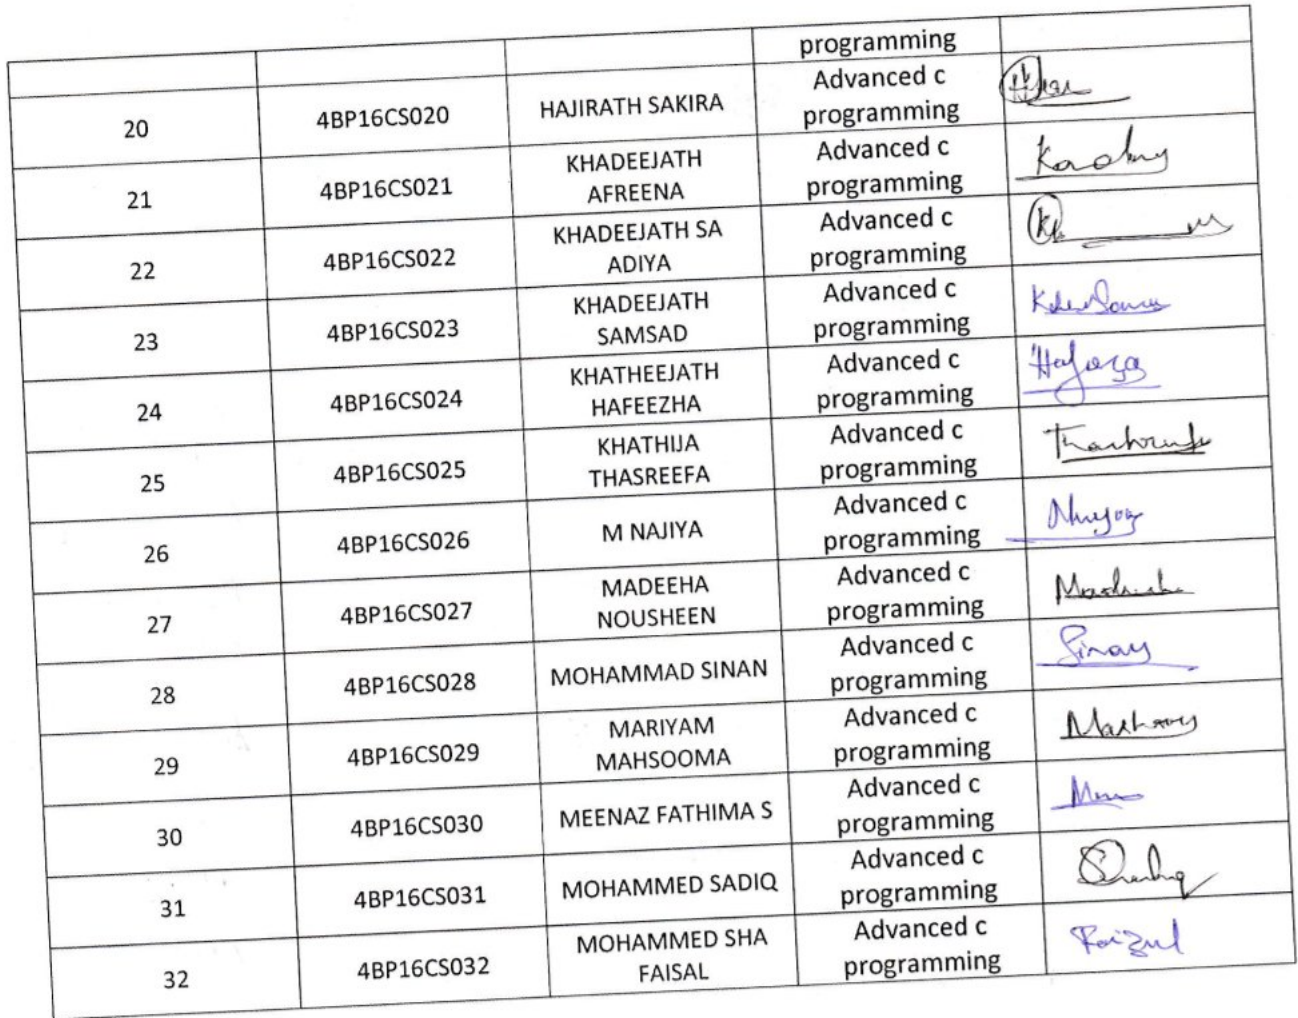 programming
20 4BP16CS020 HAJIRATH SAKIRA Advanced c
programming
21 4BP16CS021 KHADEEJATH
AFREENA Advanced c
programming
22 4BP16CS022 KHADEEJATH SA
ADIYA Advanced c
programming
23 4BP16CS023 KHADEEJATH
SAMSAD Advanced c
programming
24 4BP16CS024 KHATHEEJATH
HAFEEZHA Advanced c
programming
25 4BP16CS025 KHATHIJA
THASREEFA Advanced c
programming
26 4BP16CS026 M NAJIYA Advanced c
programming
27 4BP16CS027 MADEEHA
NOUSHEEN Advanced c
programming
28 4BP16CS028 MOHAMMAD SINAN Advanced c
programming
29 4BP16CS029 MARIYAM
MAHSOOMA Advanced c
programming
30 4BP16CS030 MEENAZ FATHIMA S Advanced c
programming
31 4BP16CS031 MOHAMMED SADIQ Advanced c
programming
32 4BP16CS032 MOHAMMED SHA
FAISAL Advanced c
programming